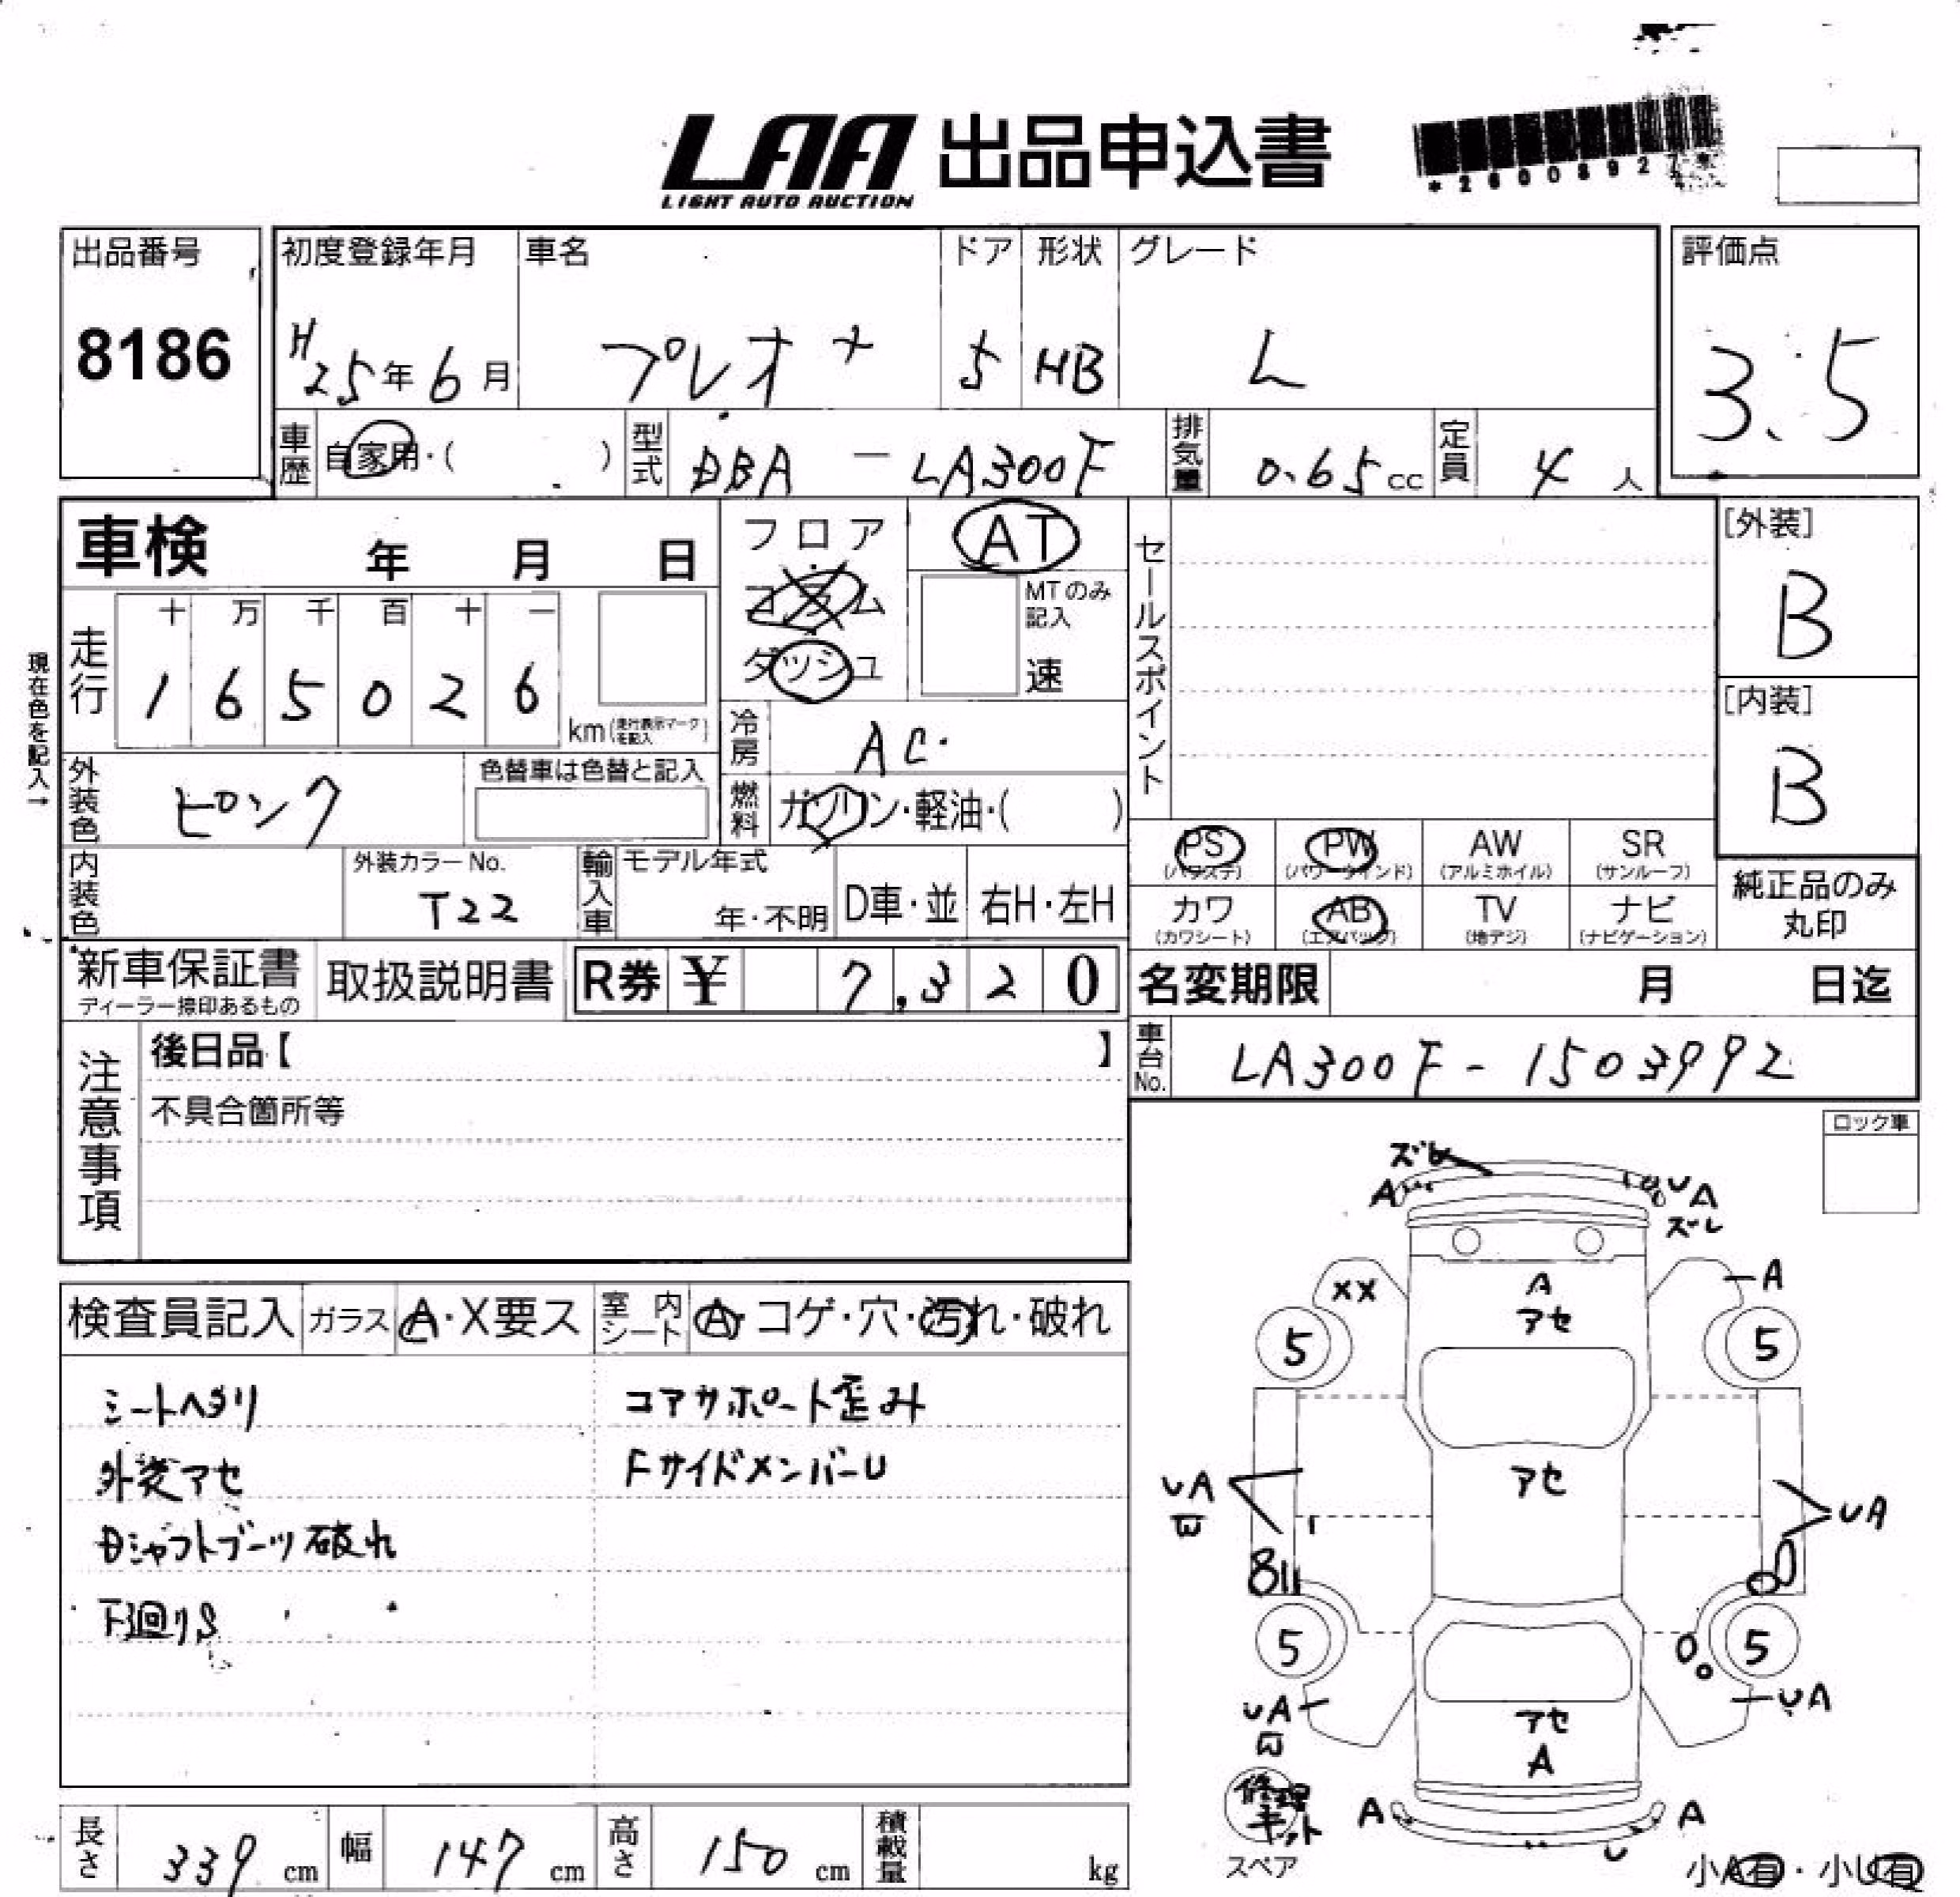 LAA 出品申込書
LIGHT AUTO AUCTION
出品番号
8186
初度登録年月
H25年6月
車名
プレオ+
ドア
5
形状
HB
グレード
L
評価点
3.5
車歴
自家用・( )
型式
DBA-LA300F
排気量
0.65cc
定員
4人
車検 年 月 日
フロア
コラム
ダッシュ
AT
MTのみ記入
速
セールスポイント
[外装]
B
[内装]
B
現在色を記入→
走行
十 万 千 百 十 一
1 6 5 0 2 6
km(走行表示マークを記入)
冷房
AC
燃料
ガソリン・軽油・( )
外装色
ピンク
色替車は色替と記入
内装色
外装カラーNo.
T22
輸入車
モデル年式
年・不明
D車・並
右H・左H
PS
(パワステ)
PW
(パワーウインド)
AW
(アルミホイル)
SR
(サンルーフ)
カワ
(カワシート)
AB
(エアバック)
TV
(地デジ)
ナビ
(ナビゲーション)
純正品のみ
丸印
新車保証書
ディーラー捺印あるもの
取扱説明書
R券 ¥ 7,320
名変期限 月 日迄
車台No.
LA300F-1503992
注意事項
後日品【 】
不具合箇所等
ロック車
検査員記入
ガラス
A・X要ス
室内シート
A・コゲ・穴・汚れ・破れ
シートヘタリ
外装アセ
Dシャフトブーツ破れ
下廻りS
コアサポート歪み
FサイドメンバーU
ズレ
A
UA
ズレ
XX
A
アセ
A
5
5
アセ
UA
UA
5
5
UA
UA
アセ
A
修理キット
スペア
A
A
U
小A有・小U有
長さ
339cm
幅
147cm
高さ
150cm
積載量
kg